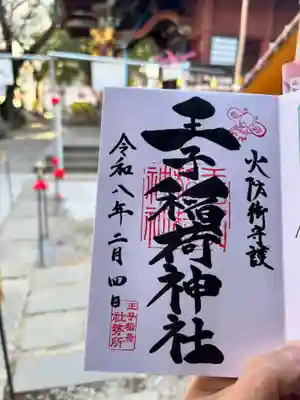 火防御守護
王子稲荷神社
令和八年二月四日
王子稲荷
社務所